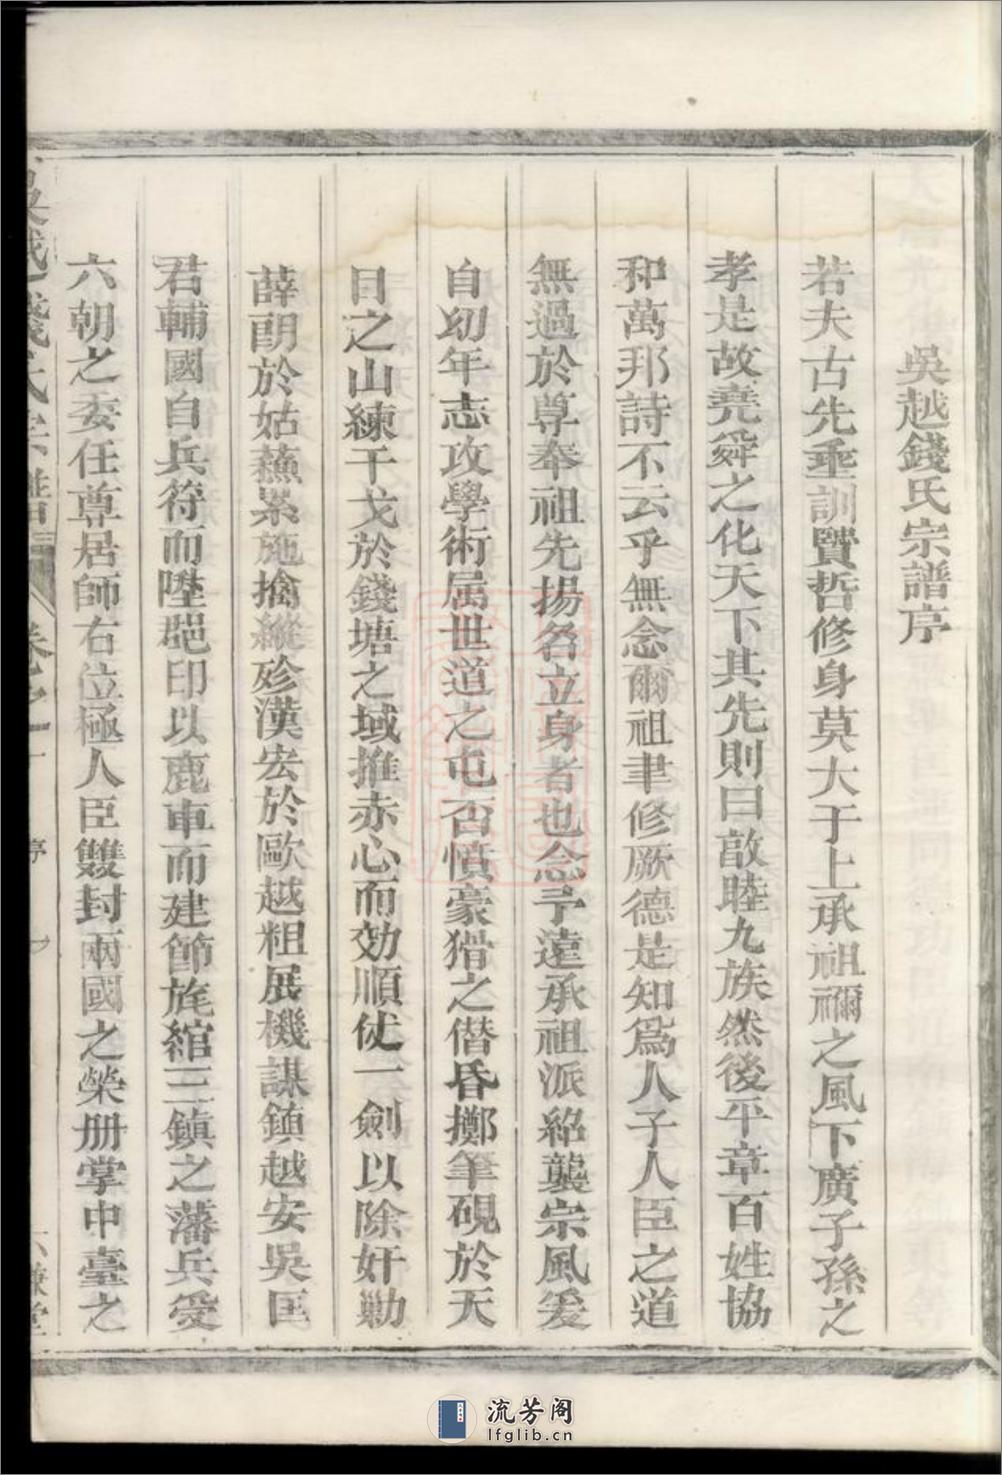 吳越錢氏宗譜序
若夫古先垂訓賢哲修身莫大于上承祖禰之風下廣子孫之
孝是故堯舜之化天下其先則曰敦睦九族然後平章百姓協
和萬邦詩不云乎無念爾祖聿修厥德是知爲人子人臣之道
無過於尊奉祖先揚名立身者也念予遠承祖派紹襲宗風爰
自幼年志攻學術属世道之屯否憤豪猾之僭昏擲筆硯於天
目之山練干戈於錢塘之域推赤心而効順仗一劍以除奸勦
薛朗於姑蘓累施擒縱殄漢宏於歐越粗展機謀鎮越安吳匡
君輔國自兵符而陞郡印以鹿車而建節旄綰三鎮之藩兵受
六朝之委任尊居師右位極人臣雙封兩國之榮册掌中臺之
吳越錢氏宗譜 卷之一 序
流芳阁
lfglib.cn